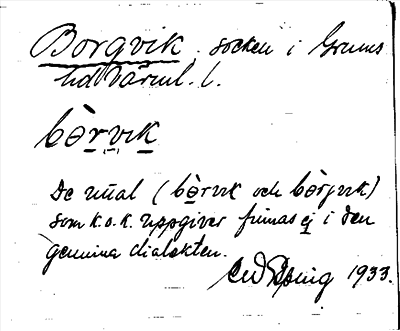 Borgvik socken i Grums
hd Värml. l.
bə̀rvık
De uttal (bə̀rvık och bə̀rjvık)
som k.o.k. uppgiver finnas ej i den
genuina dialekten.
1933.